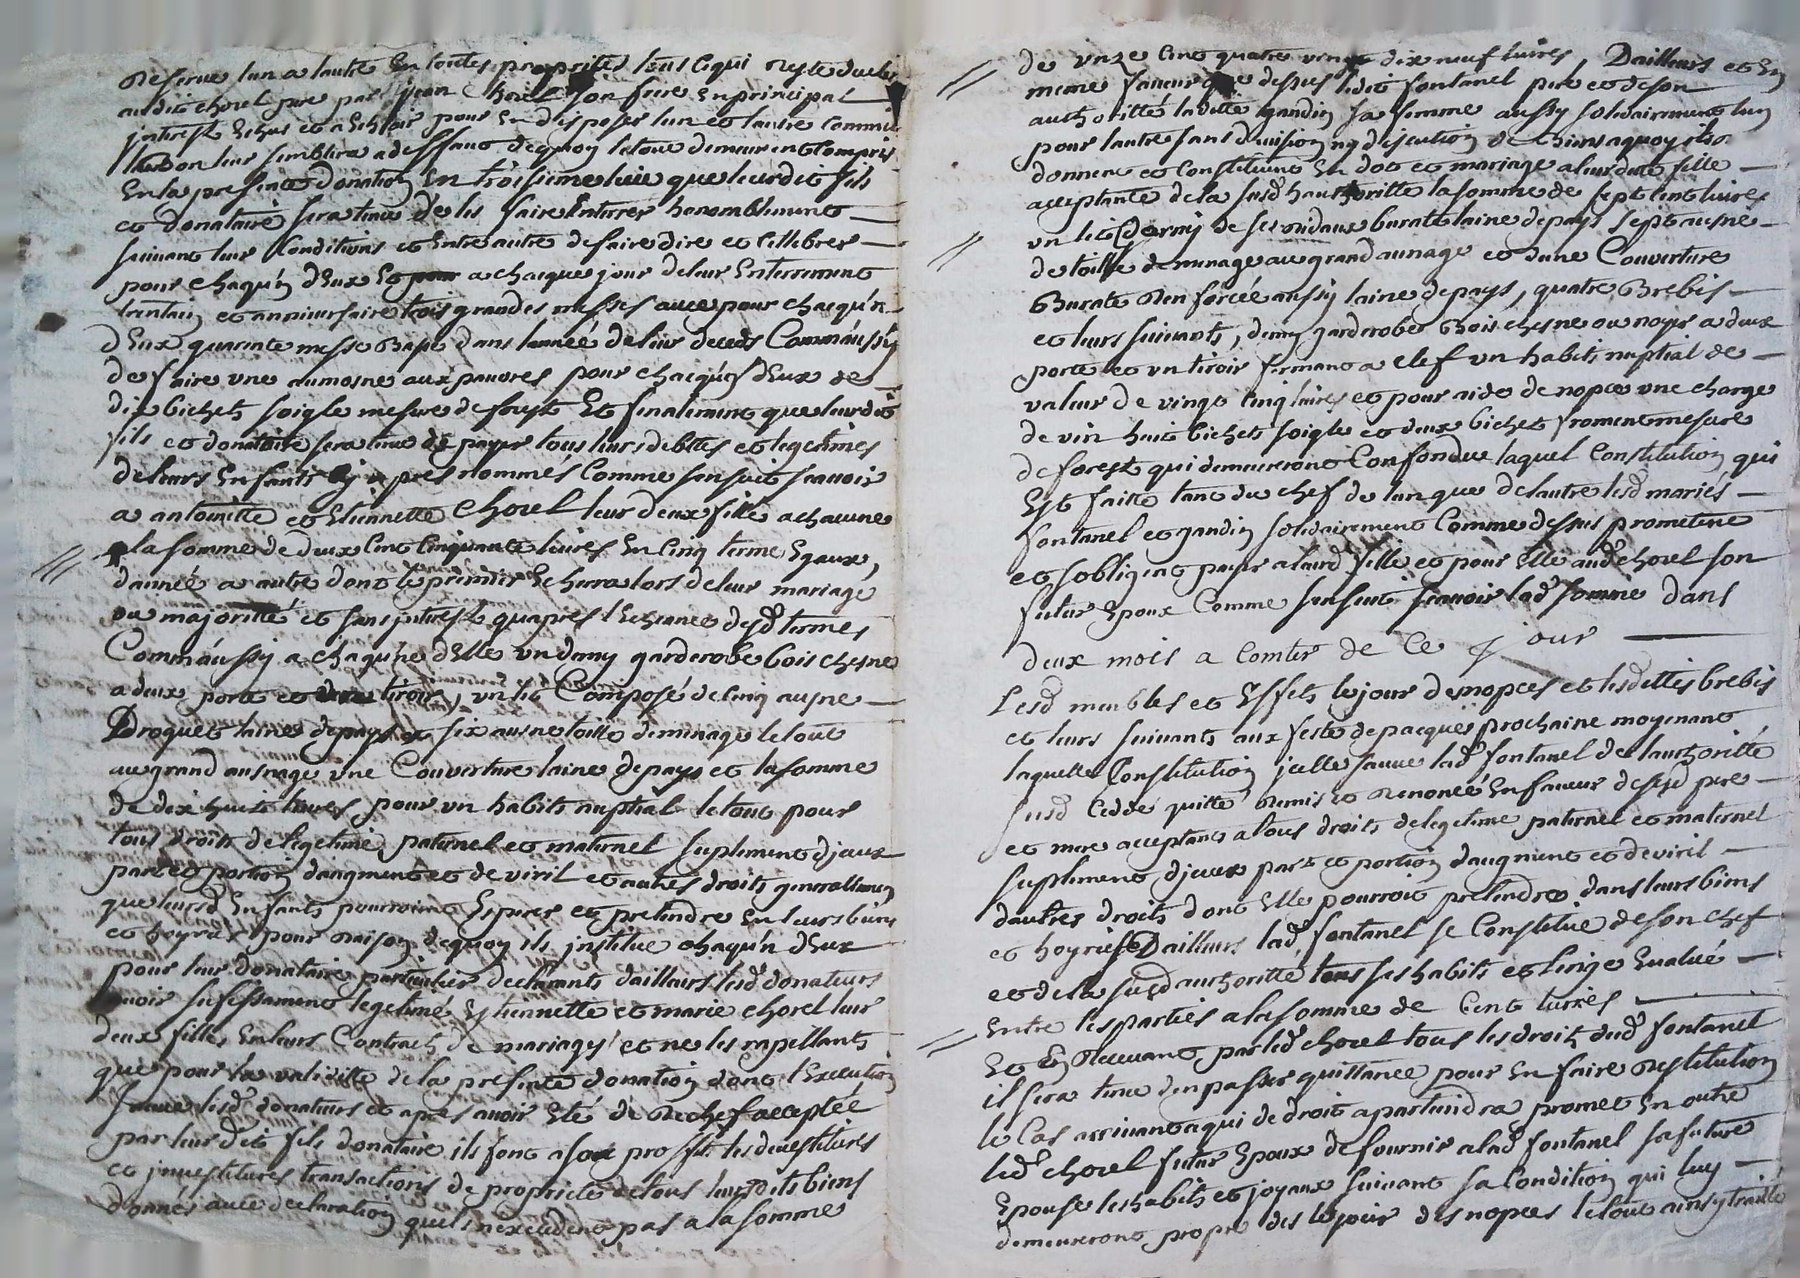 Reserve lun a lautre En toutes proprietes tous ce qui reste du
audit chorel pere par jean chorel son frere En principal
jntrest Echus et a Echoir pour En disposer lun et lautre comme
bon leur semblera a deffaut dequoy letout demeurent Compris
En la presente donation En troisieme lieu que leurdit fils
et donataire sera tenu de les faire Enterrer honnorablement
suivant leur Conditions et Entre autre de faire dire et cellebrer
pour chaqu'n d'Eux Et a chaque jour de leur Enterrement
trentain et anniversaire trois grandes messes avec pour chaqu'n
d'Eux quarente messe Basse dans lannée de leur decedz Comm'aussy
de faire une aumosne aux pauvres pour chaqu'n d'Eux de
dix bichets soigle mesure de forest Et finalement que leurdit
fils et donataire sera tenu de payer tous leurs debttes et legetimes
de leurs Enfants cy apres nommés Comme sensuit scavoir
a antoinette et Etiennette chorel leur deux fille a chacune
la somme de deux Cent Cinquante livres En Cinq terme Egaux,
dannée a autre dont le premier Echerra lors de leur mariage
ou majoritté et sans jntrest quapres l'Echeance desd termes
Comm'aussy a chaqu'ne d'Elle un demy garderobe bois chesne
a deux porte et tiroir, un lit Composé de Cinq ausne
Droguet laine depays et six ausne toille demenage letout
au grand ausnage une Couverture laine de pays et la somme
de dix huit livres pour un habits nuptial letout pour
tous droits de legetime, paternel et maternel supliment djceux
part et portion d'augment et de viril et autres droits generallement
que leursd Enfants pourroint Esperer et pretendre En leurs biens
et hoyries pour raison dequoy ils jnstitue chaqu'n d'Eux
pour leur donataire particulier declarants dailleurs lesd donateurs
avoir sufisamment legetimé Etiennette et marie chorel leur
deux filles En leurs Contracts de mariages et ne les rapellants
que pour la validitté de la presente donation dont l'Execution
lesd donateurs et apres avoir Eté de Rechef acceptée
par leur dit fils donataire ils font a son proffit les devestitures
et jnvestitures transactions de propriete de tous leursdits biens
donnés avec declaration quels nexcedent pas a la somme
de unze Cent quatre vingt dix neuf livres, Dailleurs et En
meme faveur que dessus ledit fontanel pere et de son
authoritté laditte gandin sa femme aussy solidairement lun
pour lautre sans division ny discution de biens aquoy ils
donnent et Constituent En dot et mariage a leurditte fille
acceptante de la susd hauthoritté la somme de sept Cent livres
un lit Garny de ses rideaux burate laine depays sept ausne
de toille de menage au grand aunage et d'une Couverture
Burate Renforcée aussy laine depays, quatre Brebis
et leurs suivants, demy garderobe Bois chesne ou noyer a deux
porte et un tiroir fermant a clef un habits nuptial de
valeur de vingt Cinq livres et pour aide de nopce une charge
de vin huit bichets soigle et deux bichets froment mesure
de forest qui demeureront Confondue laquel Constitution qui
Est faitte tant du chef de lun que de lautre lesd mariés
fontanel et gandin solidairement Comme dessus promettent
et sobligent payer a leurd fille et pour Elle aud chorel son
futur Epoux Comme sensuit scavoir lad somme dans
deux mois a Comter de Ce jour
Lesd meubles et Effets le jour des nopces et lesdittes brebis
et leurs suivants aux feste de pacques prochaine moyenant
laquelle Constitution jcelle lad fontanel de lauthoritté
susd Cedde quitté Remis et Renoncé En faveur desd pere
et mere acceptant a tous droits de legetime paternel et maternel
supliment djceux part et portion daugment et de viril
dautres droits dont Elle pourroit pretendre dans leurs biens
et hoyries Dailleurs lad fontanel se Constitue de son chef
et de la susd authoritté tous ses habits et linge Evalué
Entre les parties a la somme de Cent livres
Et En Recevant par led chorel tous les droits dud fontanel
il sera tenu d'en passer quittance pour En faire Restitution
le Cas arrivant a qui de droit apartiendra promet En outre
led chorel futur Epoux de fournir a lad fontanel sa future
Epouse les habits et joyaux suivant sa Condition qui luy
demeureront propre des le jour des nopces letout ainsy traitté